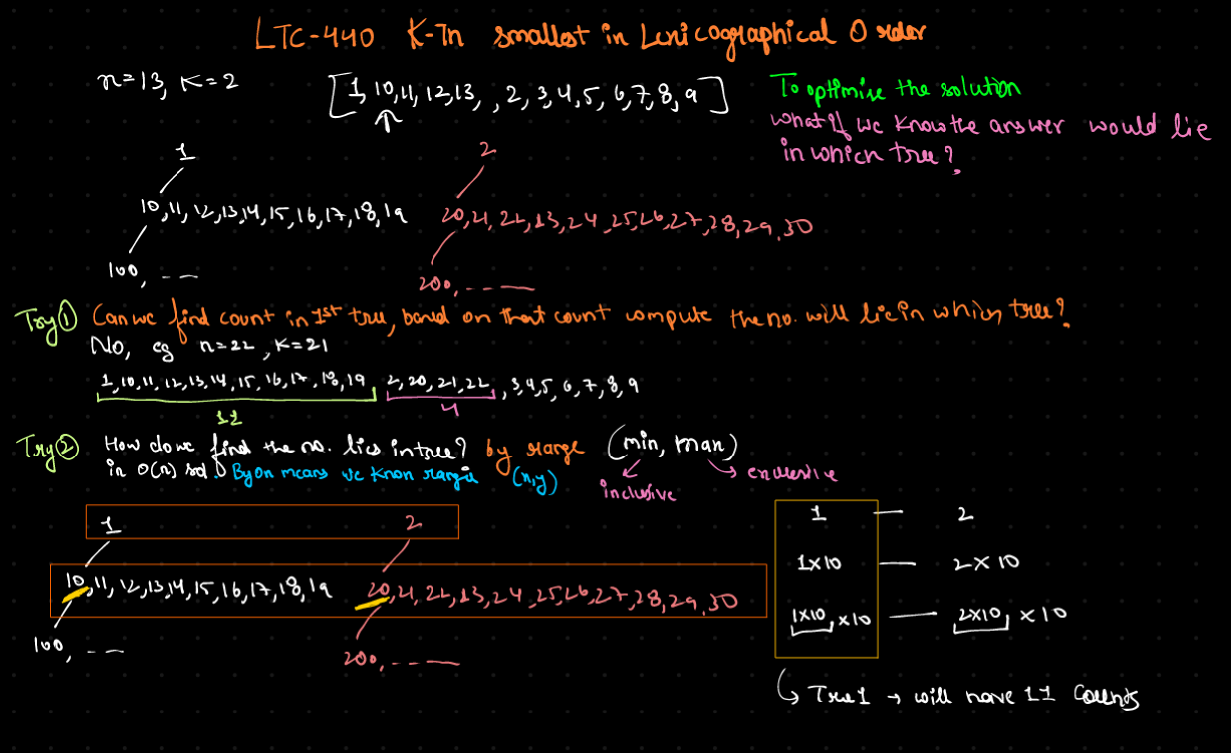 LTC-440 K-Th smallest in Lexicographical Order
n=13, K=2
[1, 10, 11, 12, 13, , 2, 3, 4, 5, 6, 7, 8, 9]
To optimise the solution
what if we know the answer would lie
in which tree?
1
2
10, 11, 12, 13, 14, 15, 16, 17, 18, 19
20, 21, 22, 23, 24, 25, 26, 27, 28, 29, 30
100, - -
200, - - -
Try① Can we find count in 1st tree, based on that count compute the no. will lie in which tree?
No, eg n=22, K=21
1, 10, 11, 12, 13, 14, 15, 16, 17, 18, 19, 2, 20, 21, 22, 3, 4, 5, 6, 7, 8, 9
11
4
Try② How do we find the no. lies in tree? by range (min, max)
in O(n) sol. By on means we know range (x,y)
inclusive
exclusive
1
2
10, 11, 12, 13, 14, 15, 16, 17, 18, 19
20, 21, 22, 23, 24, 25, 26, 27, 28, 29, 30
100, - -
200, - - -
1 — 2
1x10 — 2x10
1x10, x10 — 2x10, x10
Tree1 → will have 11 counts